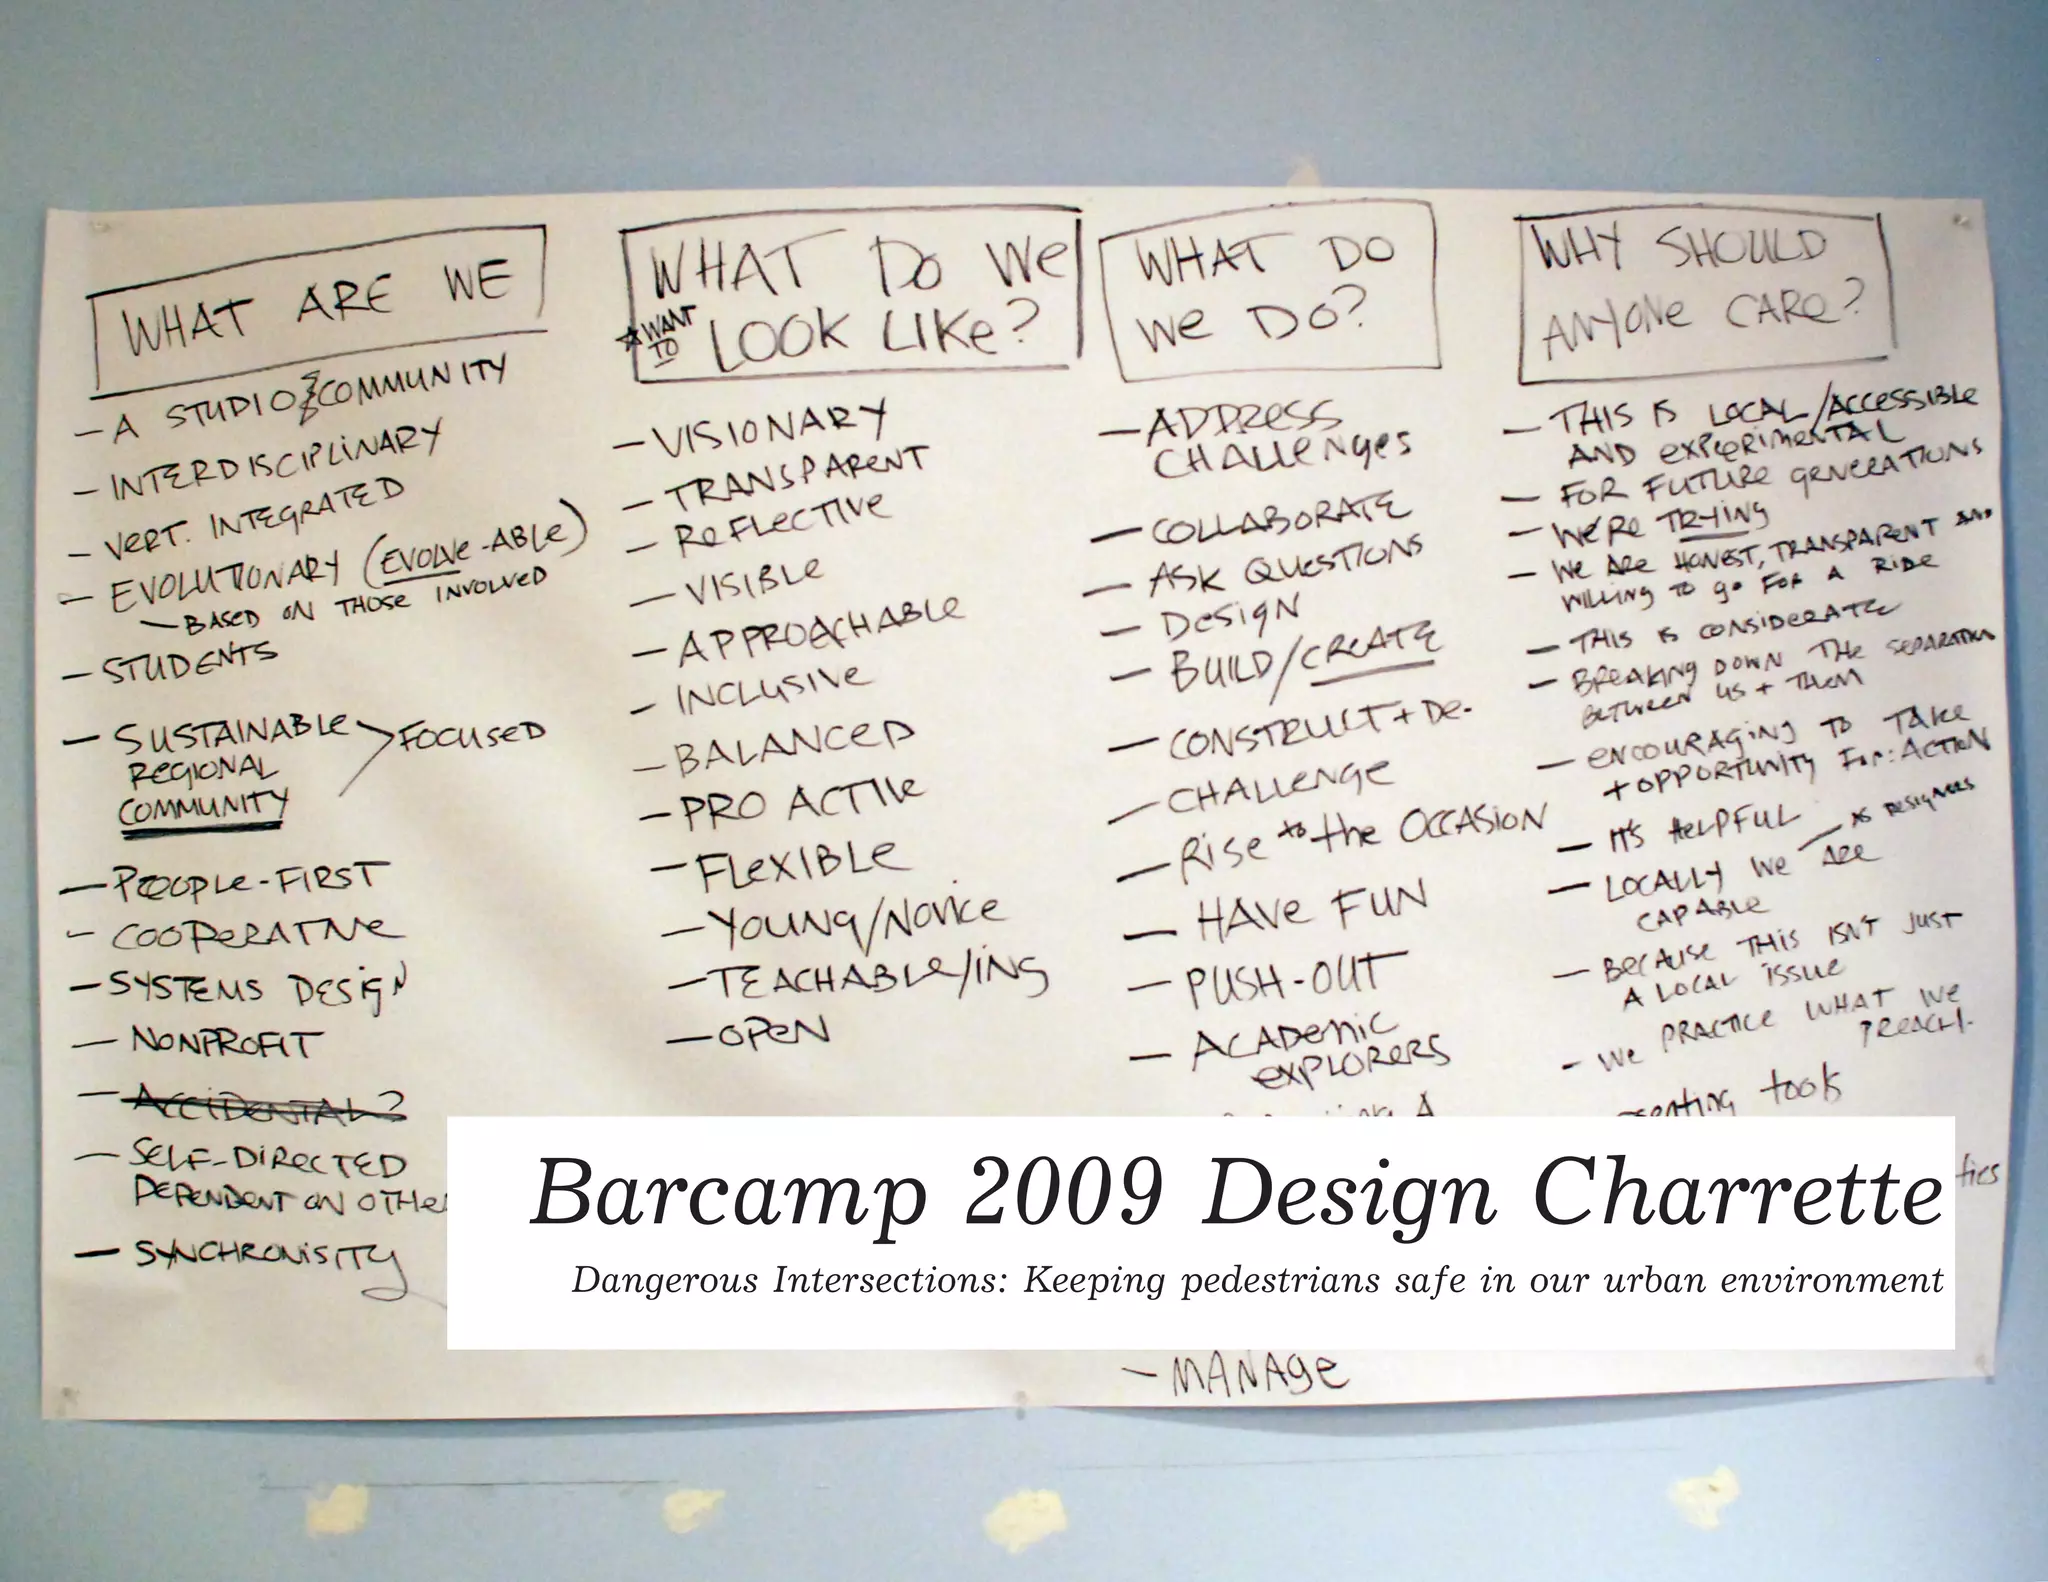 WHAT ARE WE
- A STUDIO & COMMUNITY
- INTERDISCIPLINARY
- VERT. INTEGRATED
- EVOLUTIONARY (EVOLVE-ABLE)
- BASED ON THOSE INVOLVED
- STUDENTS
- SUSTAINABLE > FOCUSED
REGIONAL
COMMUNITY
- PEOPLE-FIRST
- COOPERATIVE
- SYSTEMS DESIGN
- NONPROFIT
- ACCIDENTAL?
- SELF-DIRECTED
DEPENDENT ON
- SYNCHRONISITY
WHAT DO WE
* WANT TO LOOK LIKE?
- VISIONARY
- TRANSPARENT
- REFLECTIVE
- VISIBLE
- APPROACHABLE
- INCLUSIVE
- BALANCED
- PRO ACTIVE
- FLEXIBLE
- YOUNG/NOVICE
- TEACHABLE/ING
- OPEN
WHAT DO
WE DO?
- ADDRESS
CHALLENGES
- COLLABORATE
- ASK QUESTIONS
- DESIGN
- BUILD/CREATE
- CONSTRUCT + DE-
- CHALLENGE
- RISE to the OCCASION
- HAVE FUN
- PUSH-OUT
- ACADEMIC
EXPLORERS
A
- MANAGE
WHY SHOULD
ANYONE CARE?
- THIS IS LOCAL/ACCESSIBLE
AND EXPERIMENTAL
- FOR FUTURE GENERATIONS
- WE'RE TRYING
- WE ARE HONEST, TRANSPARENT AND
WILLING TO GO FOR A RIDE
- THIS IS CONSIDERATE
- BREAKING DOWN THE SEPARATION
BETWEEN US + THEM
- ENCOURAGING TO TAKE
+ OPPORTUNITY FOR: ACTION
- IT'S HELPFUL
- LOCALLY WE ARE
CAPABLE
- AS DESIGNERS
- BECAUSE THIS ISN'T JUST
A LOCAL ISSUE
- WE PRACTICE WHAT WE
PREACH.
tools
Barcamp 2009 Design Charrette
Dangerous Intersections: Keeping pedestrians safe in our urban environment